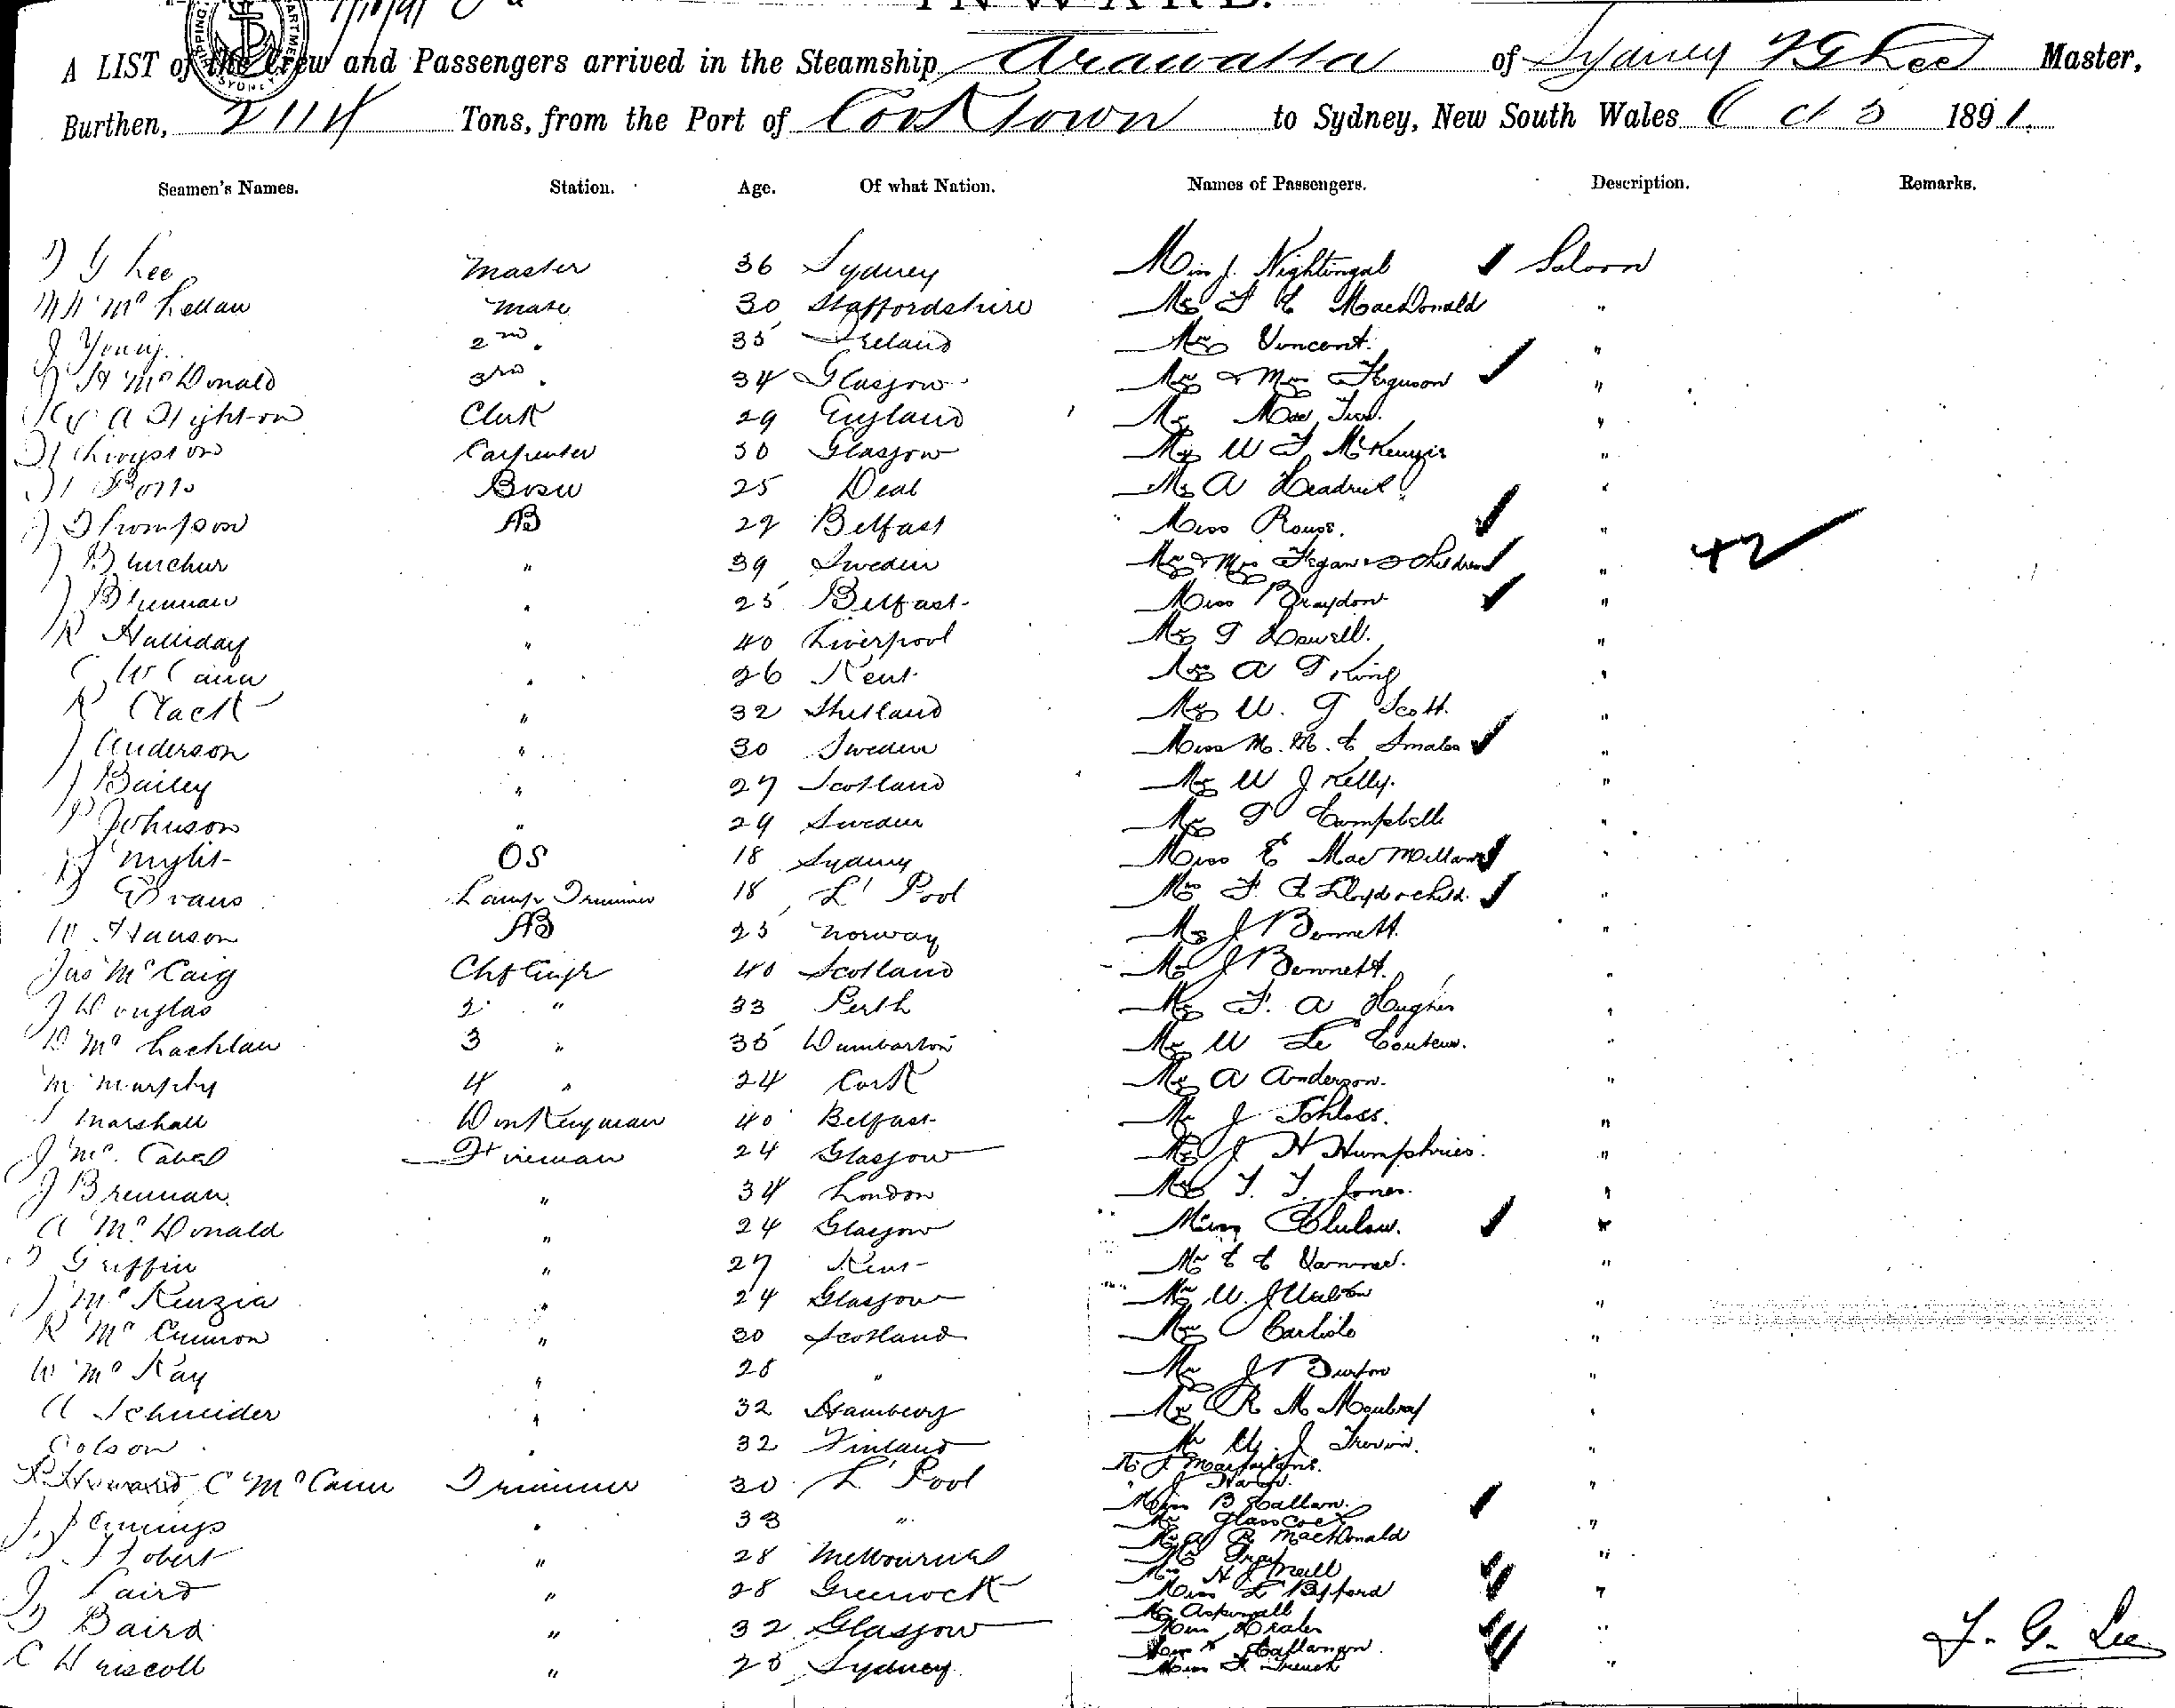 INWARD.
A LIST of the Crew and Passengers arrived in the Steamship Arawatta of Sydney F G Lee Master,
Burthen, 2114 Tons, from the Port of Cooktown to Sydney, New South Wales Oct 5 1891.
Seamen's Names. Station. Age. Of what Nation. Names of Passengers. Description. Remarks.
F G Lee Master 36 Sydney Miss J. Nightingal Saloon
McLellan Mate 30 Staffordshire Mr F E MacDonald "
J Young 2nd " 35 Ireland Vincent "
McDonald 3rd " 34 Glasgow Mr & Mrs Ferguson "
A Dighton Clerk 29 England Mr "
Livingston Carpenter 30 Glasgow Mr W F McKenzie "
Potts Bosn 25 Deal Mr A Headrick "
J Thompson AB 29 Belfast Miss Rouse. "
J " 39 Sweden Mr & Mrs Fegan & Children " 42
J Brennan " 25 Belfast Miss Braydon "
R Halliday " 40 Liverpool Mr T "
C W Cann " 26 Kent Mr A T King "
R Clack " 32 Shetland Mr W. G Scott. "
J Anderson " 30 Sweden Miss M. M. E Smales "
J Bailey " 27 Scotland Mr W J Kelly. "
P Johnson " 29 Sweden Mr T Campbell "
OS 18 Sydney Miss E MacMillan "
Evans Lamp Trimmer 18 L'Pool Mrs F. E Lloyd & child. "
Hanson AB 25 Norway Mr J Bennett. "
Jas McCaig Chf Engr 40 Scotland Mr J Bennett. "
J Douglas 2 " 33 Perth Mr F. A Hughes "
D McLachlan 3 " 35 Dumbarton Mr W Le Couteur. "
M Murphy 4 " 24 Cork Mr A Anderson. "
Marshall Donkeyman 40 Belfast Mr J Schloss. "
J McCabe Fireman 24 Glasgow Mr J H Humphries. "
J Brennan " 34 London Mr T. T. Jones. "
A McDonald " 24 Glasgow Miss Clulow. "
Griffin " 27 Kent Mr E E "
J McKenzie " 24 Glasgow Mr W. J Walton "
R McCunnon " 30 Scotland Carlisle "
W McKay " 28 " Mr J Burton "
A Schneider " 32 Hamburg Mr R M Moubray "
Colson " 32 Finland Mr W. J "
Howard C McCann Trimmer 30 L'Pool Mr J Macfarlane. "
" J
Miss B Hallam.
J. Jennings " 33 " Mr Glasscock "
Mr A R MacDonald
Tobert " 28 Melbourne Mr Gray "
Mrs H J Neill
J Laird " 28 Greenock Miss L Bifford "
Mr Aspinall
Baird " 32 Glasgow Miss "
Miss Callanan
C Driscoll " 25 Sydney Miss F. French "
F. G. Lee